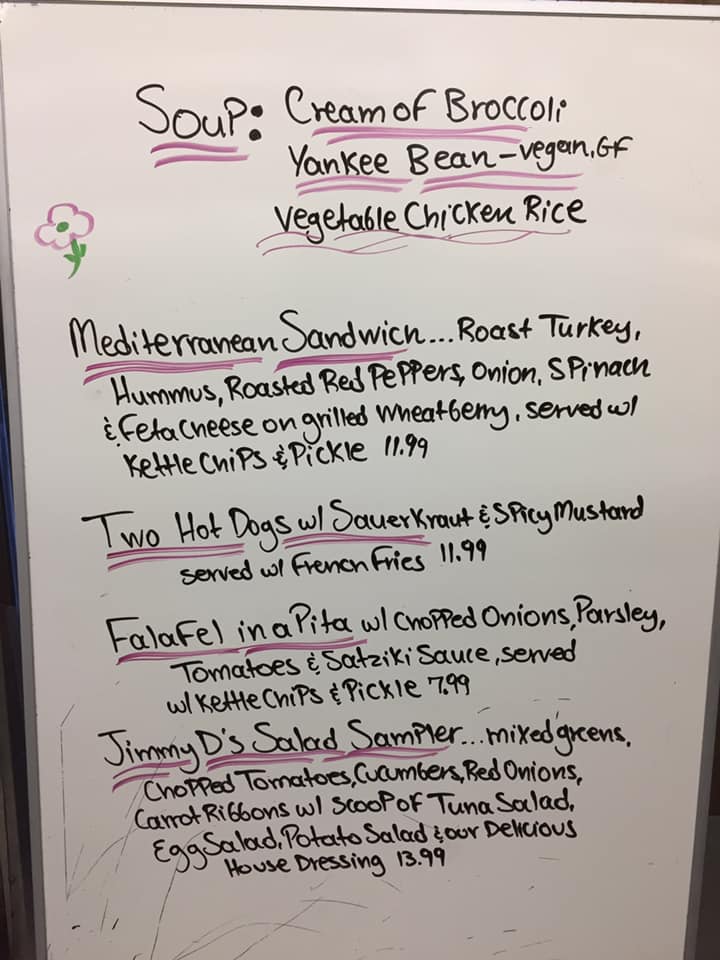 Soup: Cream of Broccoli
Yankee Bean - vegan, GF
Vegetable Chicken Rice
Mediterranean Sandwich... Roast Turkey,
Hummus, Roasted Red Peppers, Onion, Spinach
& Feta Cheese on grilled Wheatberry, served w/
Kettle Chips & Pickle 11.99
Two Hot Dogs w/ Sauerkraut & Spicy Mustard
served w/ French Fries 11.99
Falafel in a Pita w/ Chopped Onions, Parsley,
Tomatoes & Satziki Sauce, served
w/ Kettle Chips & Pickle 7.99
Jimmy D's Salad Sampler... mixed greens,
Chopped Tomatoes, Cucumbers, Red Onions,
Carrot Ribbons w/ Scoop of Tuna Salad,
Egg Salad, Potato Salad & our Delicious
House Dressing 13.99